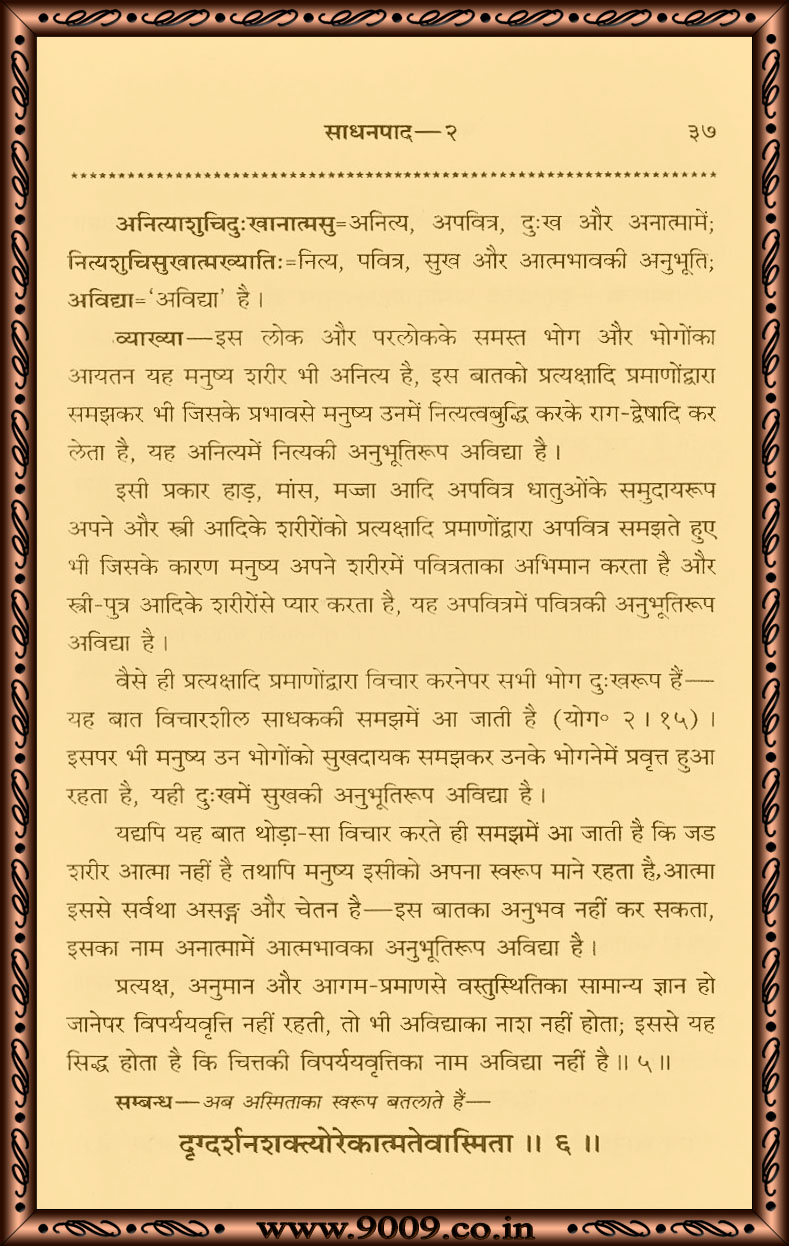 साधनपाद—२ ३७
अनित्याशुचिदुःखानात्मसु=अनित्य, अपवित्र, दुःख और अनात्मामें;
नित्यशुचिसुखात्मख्यातिः=नित्य, पवित्र, सुख और आत्मभावकी अनुभूति;
अविद्या=‘अविद्या’ है ।
व्याख्या—इस लोक और परलोकके समस्त भोग और भोगोंका
आयतन यह मनुष्य शरीर भी अनित्य है, इस बातको प्रत्यक्षादि प्रमाणोंद्वारा
समझकर भी जिसके प्रभावसे मनुष्य उनमें नित्यत्वबुद्धि करके राग-द्वेषादि कर
लेता है, यह अनित्यमें नित्यकी अनुभूतिरूप अविद्या है ।
इसी प्रकार हाड़, मांस, मज्जा आदि अपवित्र धातुओंके समुदायरूप
अपने और स्त्री आदिके शरीरोंको प्रत्यक्षादि प्रमाणोंद्वारा अपवित्र समझते हुए
भी जिसके कारण मनुष्य अपने शरीरमें पवित्रताका अभिमान करता है और
स्त्री-पुत्र आदिके शरीरोंसे प्यार करता है, यह अपवित्रमें पवित्रकी अनुभूतिरूप
अविद्या है ।
वैसे ही प्रत्यक्षादि प्रमाणोंद्वारा विचार करनेपर सभी भोग दुःखरूप हैं—
यह बात विचारशील साधककी समझमें आ जाती है (योग॰ २ । १५) ।
इसपर भी मनुष्य उन भोगोंको सुखदायक समझकर उनके भोगनेमें प्रवृत्त हुआ
रहता है, यही दुःखमें सुखकी अनुभूतिरूप अविद्या है ।
यद्यपि यह बात थोड़ा-सा विचार करते ही समझमें आ जाती है कि जड
शरीर आत्मा नहीं है तथापि मनुष्य इसीको अपना स्वरूप माने रहता है,आत्मा
इससे सर्वथा असङ्ग और चेतन है—इस बातका अनुभव नहीं कर सकता,
इसका नाम अनात्मामें आत्मभावका अनुभूतिरूप अविद्या है ।
प्रत्यक्ष, अनुमान और आगम-प्रमाणसे वस्तुस्थितिका सामान्य ज्ञान हो
जानेपर विपर्ययवृत्ति नहीं रहती, तो भी अविद्याका नाश नहीं होता; इससे यह
सिद्ध होता है कि चित्तकी विपर्ययवृत्तिका नाम अविद्या नहीं है ॥ ५ ॥
सम्बन्ध—अब अस्मिताका स्वरूप बतलाते हैं—
दृग्दर्शनशक्त्योरेकात्मतेवास्मिता ॥ ६ ॥
www.9009.co.in